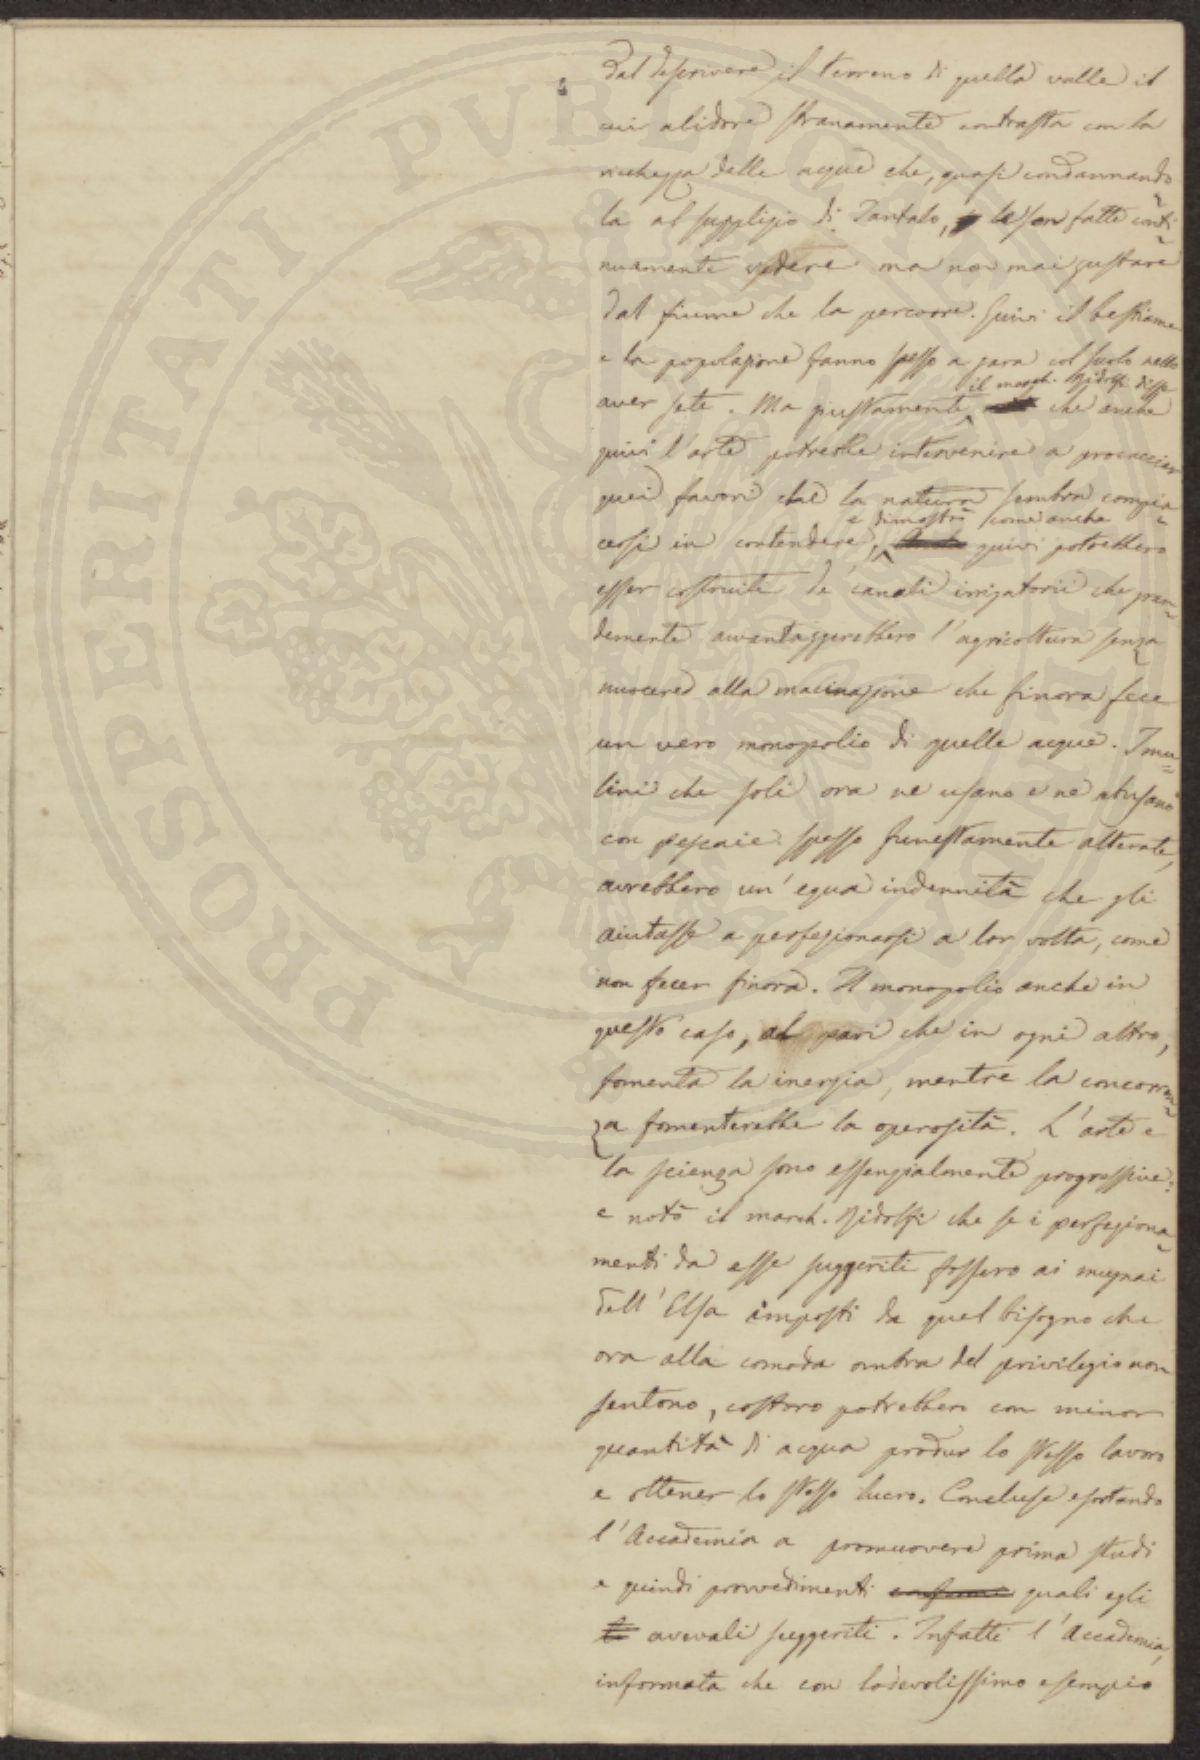 dal descrivere il terreno di quella valle il
cui alidore stranamente contrasta con la
ricchezza delle acque che, quasi condannando
la al supplizio di Tantalo, le son fatte conti
nuamente vedere ma non mai gustare
dal fiume che la percorre. Quivi il bestiame
e la popolazione fanno spesso a gara col suolo nello
il march. Ridolfi disse
aver sete. Ma giustamente che anche
quivi l'arte potrebbe intervenire a procacciar
quei favori che la natura sembra compia
e dimostrò come anche
cersi in contendere, quivi potrebbero
esser costruiti de' canali irrigatorii che gran
demente avvantaggerebbero l'agricoltura senza
nuocere alla macinazione che finora fece
un vero monopolio di quelle acque. I mu
lini che soli ora ne usano e ne abusano
con pescaie spesso funestamente alterate,
avrebbero un' equa indennità che gli
aiutasse a perfezionarsi a lor volta, come
non fecer finora. Il monopolio anche in
questo caso, al pari che in ogni altro,
fomenta la inerzia, mentre la concorren
za fomenterebbe la operosità. L'arte e
la scienza sono essenzialmente progressive:
e notò il march. Ridolfi che se i perfeziona
menti da esse suggeriti fossero ai mugnai
dell'Elsa imposti da quel bisogno che
ora alla comoda ombra del privilegio non
sentono, costoro potrebbero con minor
quantità di acqua produr lo stesso lavoro
e ottener lo stesso lucro. Concluse esortando
l'Accademia a promuovere prima studi
e quindi provvedimenti quali egli
avevali suggeriti. Infatti l'Accademia,
informata che con lodevolissimo esempio
PROSPERITATI PVBLICAE